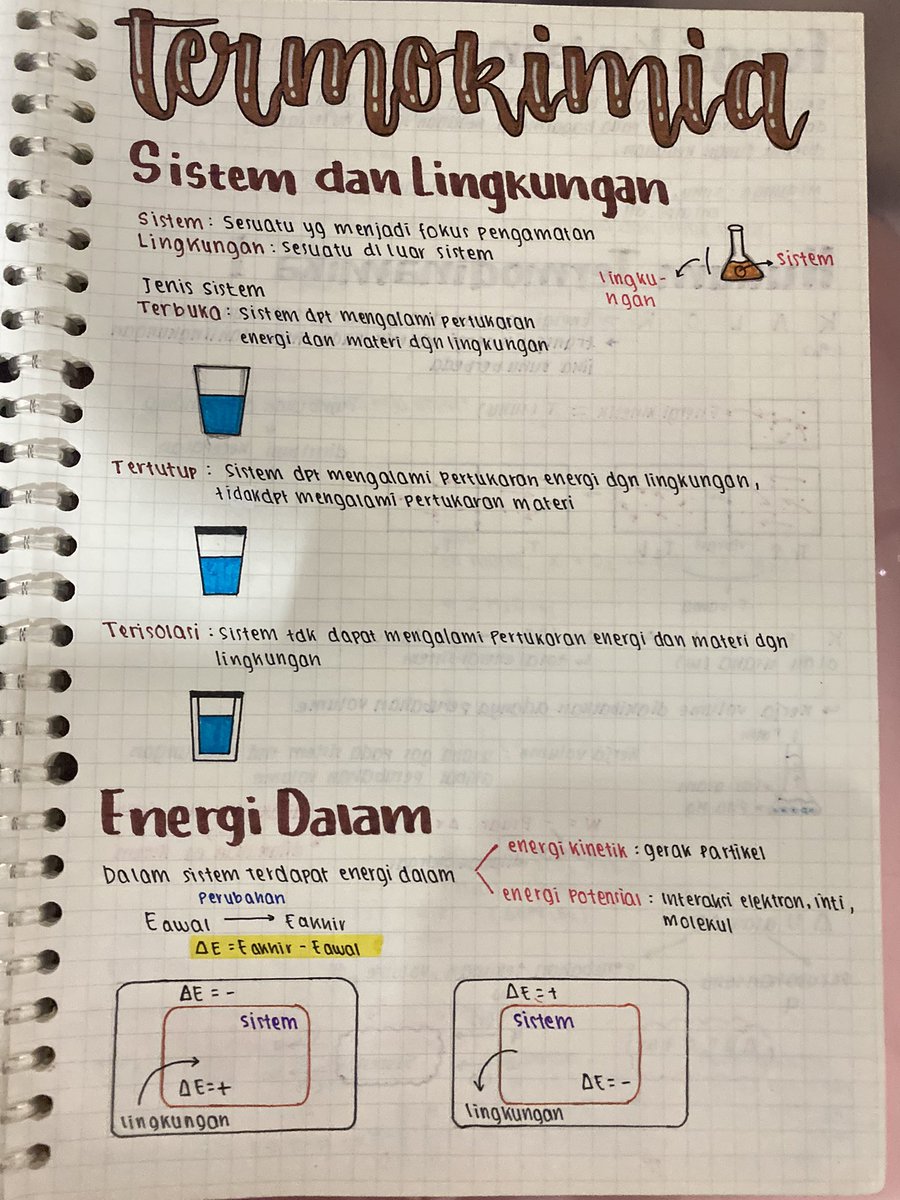 termokimia
Sistem dan Lingkungan
Sistem : sesuatu yg menjadi fokus pengamatan
Lingkungan : sesuatu di luar sistem
sistem
lingku-
ngan
Jenis sistem
Terbuka : sistem dpt mengalami pertukaran
energi dan materi dgn lingkungan
Tertutup : sistem dpt mengalami pertukaran energi dgn lingkungan,
tidakdpt mengalami pertukaran materi
Terisolasi : sistem tdk dapat mengalami pertukaran energi dan materi dgn
lingkungan
Energi Dalam
energi kinetik : gerak partikel
Dalam sistem terdapat energi dalam
energi potensial : interaksi elektron, inti,
molekul
Perubahan
Eawal → Eakhir
ΔE = Eakhir - Eawal
ΔE = -
sistem
ΔE = +
lingkungan
ΔE = +
sistem
ΔE = -
lingkungan